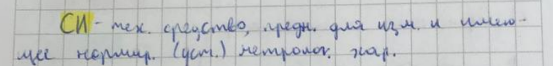 СИ - тех. средство, предн. для изм. и имею-
щее нормир. (уст.) метролог. хар.